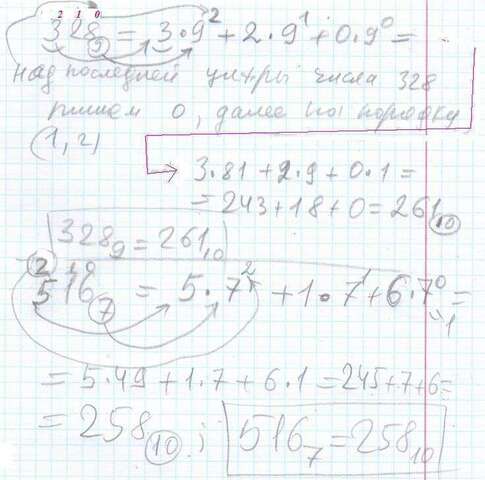 2 1 0
328₉ = 3·9² + 2·9¹ + 0·9⁰ =
над последней цифры числа 328
пишем 0, далее по порядку
(1, 2)
→ 3·81 + 2·9 + 0·1 =
= 243 + 18 + 0 = 261₁₀
328₉ = 261₁₀
2 1 0
516₇ = 5·7² + 1·7¹ + 6·7⁰ =
1
= 5·49 + 1·7 + 6·1 = 245 + 7 + 6 =
= 258₁₀ ; 516₇ = 258₁₀